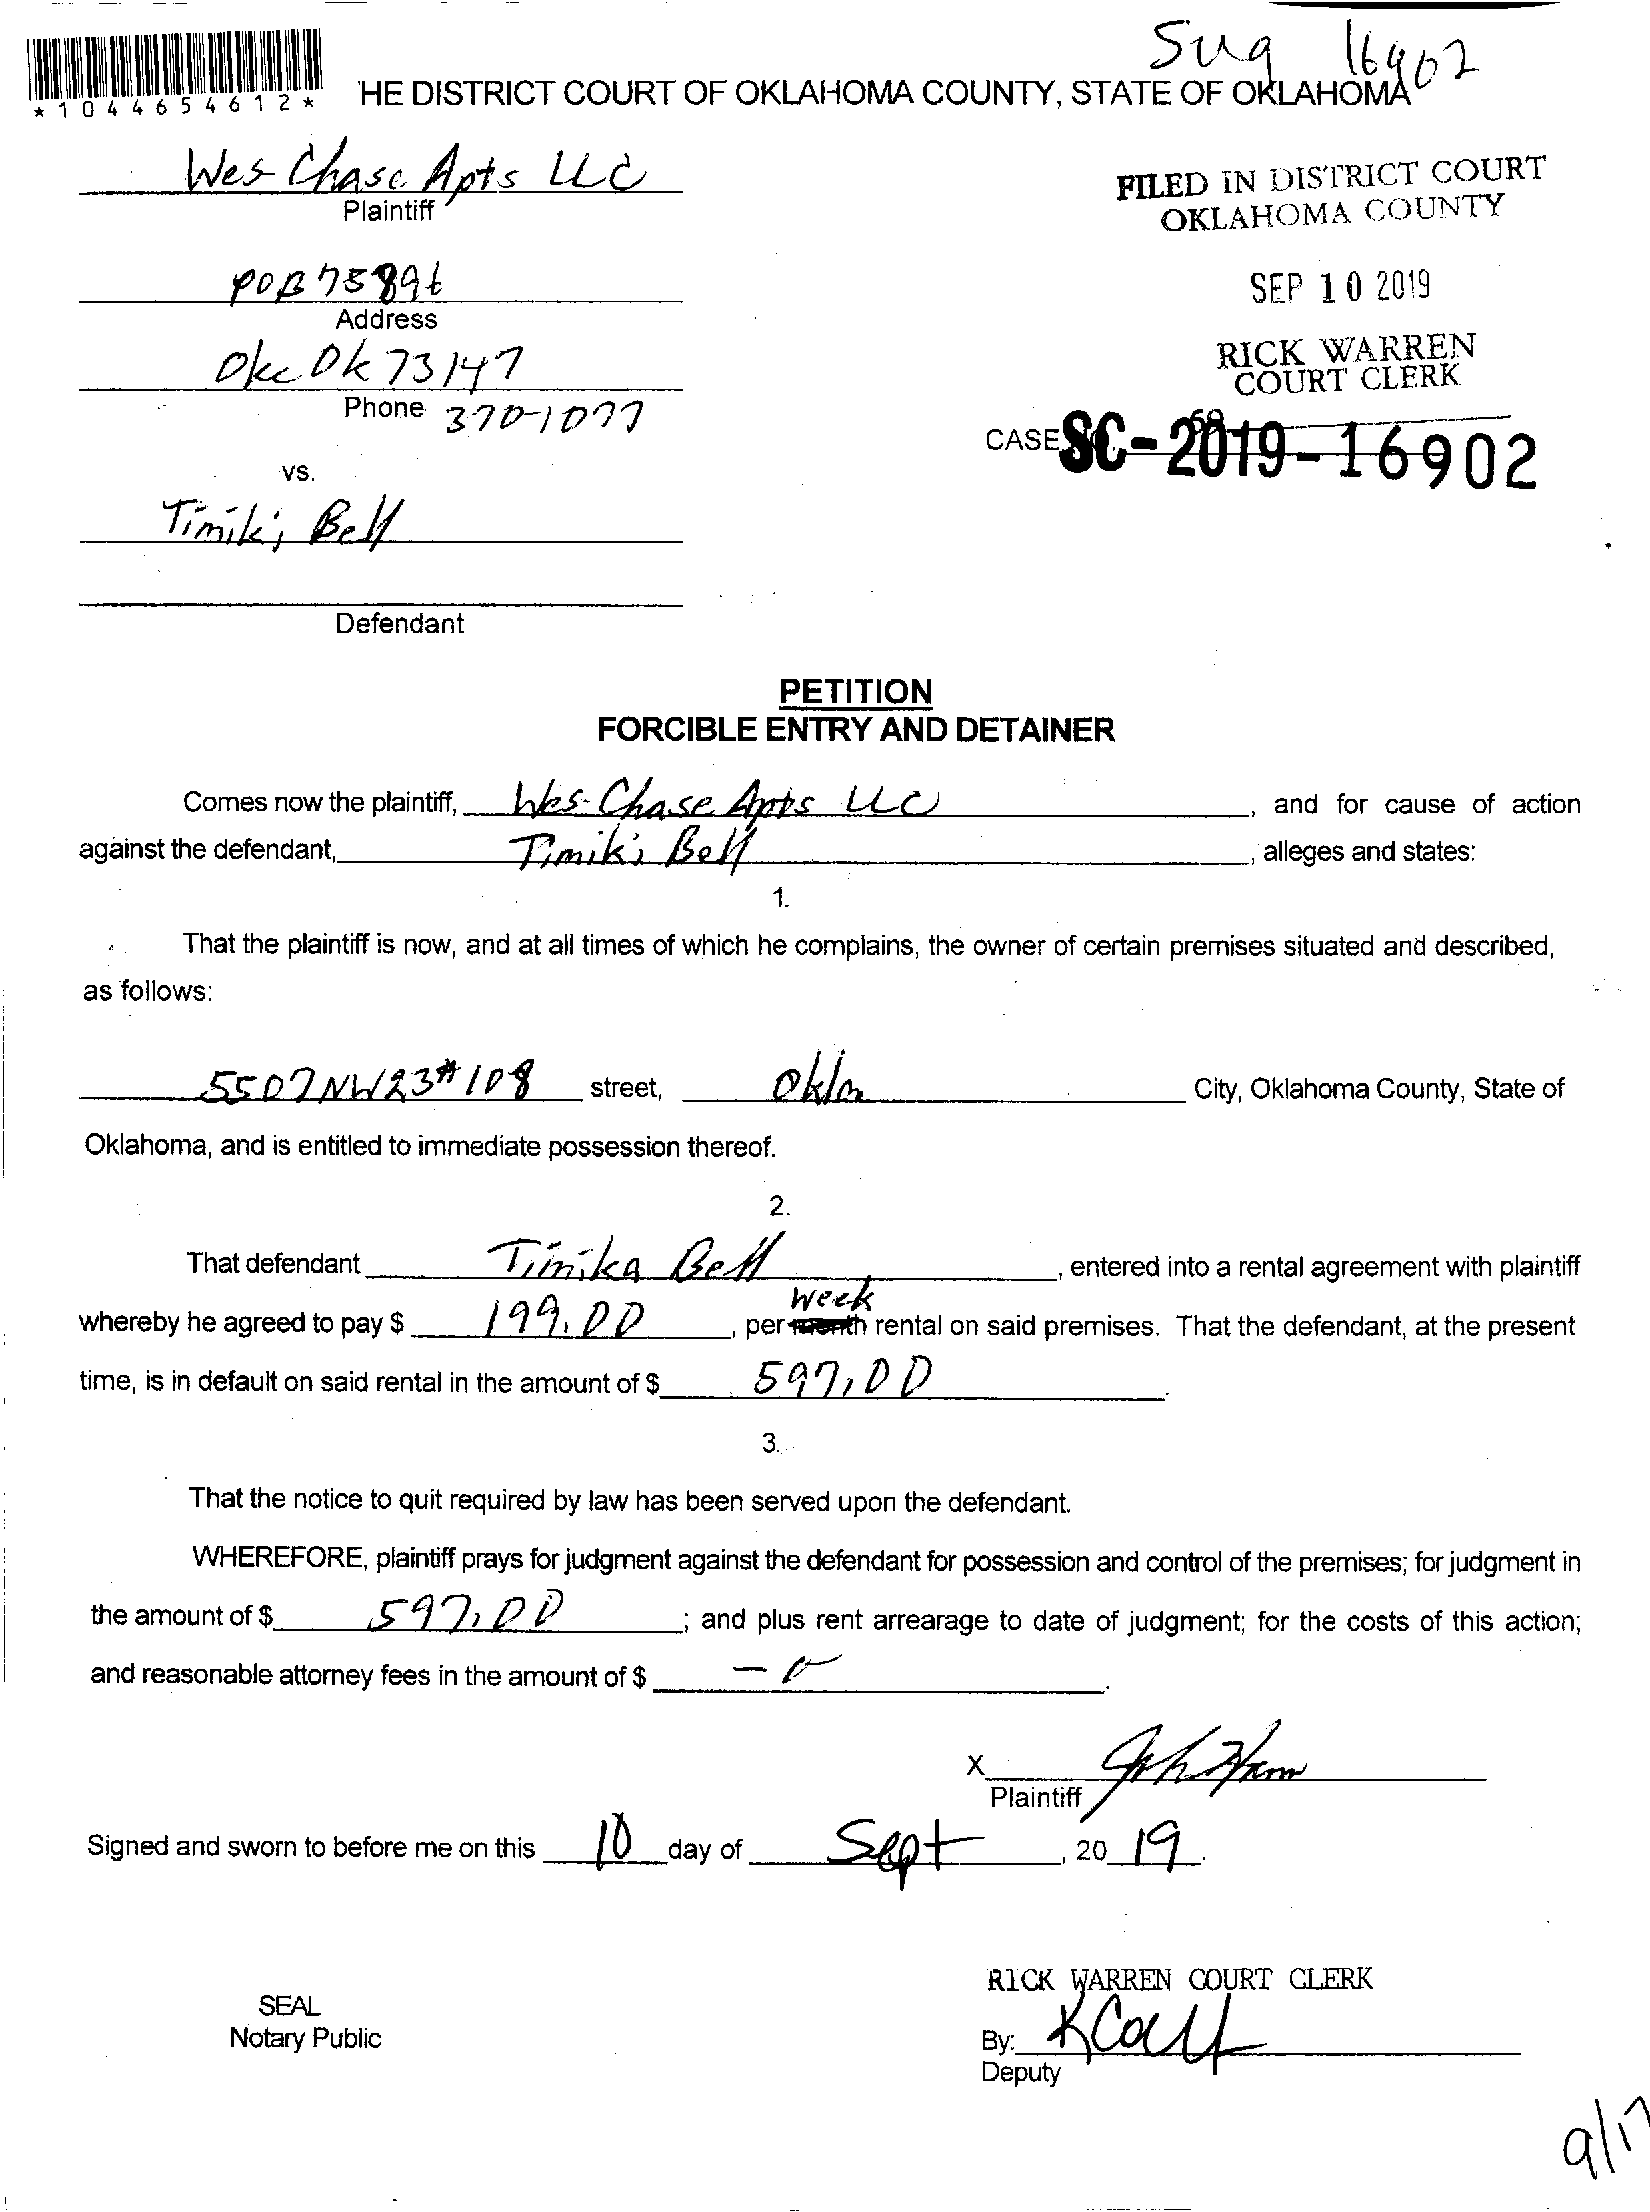 Sug 16902
*1044654612*
'HE DISTRICT COURT OF OKLAHOMA COUNTY, STATE OF OKLAHOMA
Wes Chase Apts LLC
Plaintiff
FILED IN DISTRICT COURT
OKLAHOMA COUNTY
POB 75896
Address
SEP 10 2019
Okc Ok 73147
Phone 370-1077
RICK WARREN
COURT CLERK
CASE SC-2019-16902
vs.
Timiki Bell
Defendant
PETITION
FORCIBLE ENTRY AND DETAINER
Comes now the plaintiff, Wes-Chase Apts LLC, and for cause of action
against the defendant, Timiki Bell, alleges and states:
1.
That the plaintiff is now, and at all times of which he complains, the owner of certain premises situated and described,
as follows:
5507 NW 23 #108 street, Okla City, Oklahoma County, State of
Oklahoma, and is entitled to immediate possession thereof.
2.
That defendant Timika Bell, entered into a rental agreement with plaintiff
Week
whereby he agreed to pay $ 199.00, per month rental on said premises. That the defendant, at the present
time, is in default on said rental in the amount of $ 597.00.
3.
That the notice to quit required by law has been served upon the defendant.
WHEREFORE, plaintiff prays for judgment against the defendant for possession and control of the premises; for judgment in
the amount of $ 597.00; and plus rent arrearage to date of judgment; for the costs of this action;
and reasonable attorney fees in the amount of $ - 0.
X
Plaintiff
Signed and sworn to before me on this 10 day of Sept, 20 19.
RICK WARREN COURT CLERK
SEAL
Notary Public
By:
Deputy
9/17